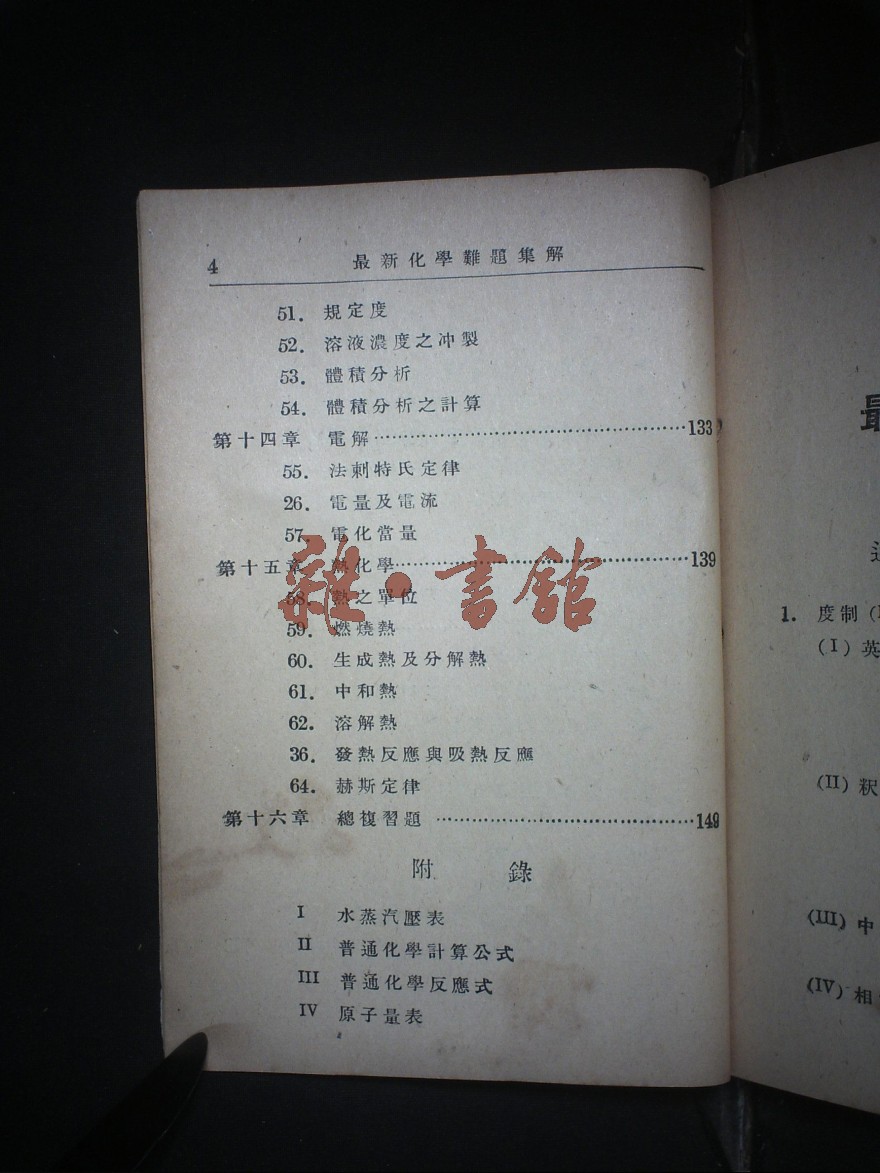 4 最新化學難題集解
51. 規定度
52. 溶液濃度之冲製
53. 體積分析
54. 體積分析之計算
第十四章 電解……………………………………133
55. 法剌特氏定律
26. 電量及電流
57. 電化當量
第十五章 熱化學……………………………………139
58. 熱之單位
59. 燃燒熱
60. 生成熱及分解熱
61. 中和熱
62. 溶解熱
36. 發熱反應與吸熱反應
64. 赫斯定律
第十六章 總複習題……………………………………149
附 錄
I 水蒸汽壓表
II 普通化學計算公式
III 普通化學反應式
IV 原子量表
雜·書館
1. 度制
(I) 英
(II) 釈
(III) 中
(IV) 相